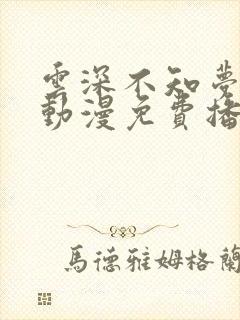 雲深不知夢
動漫免費播
馬德雅姆格蘭